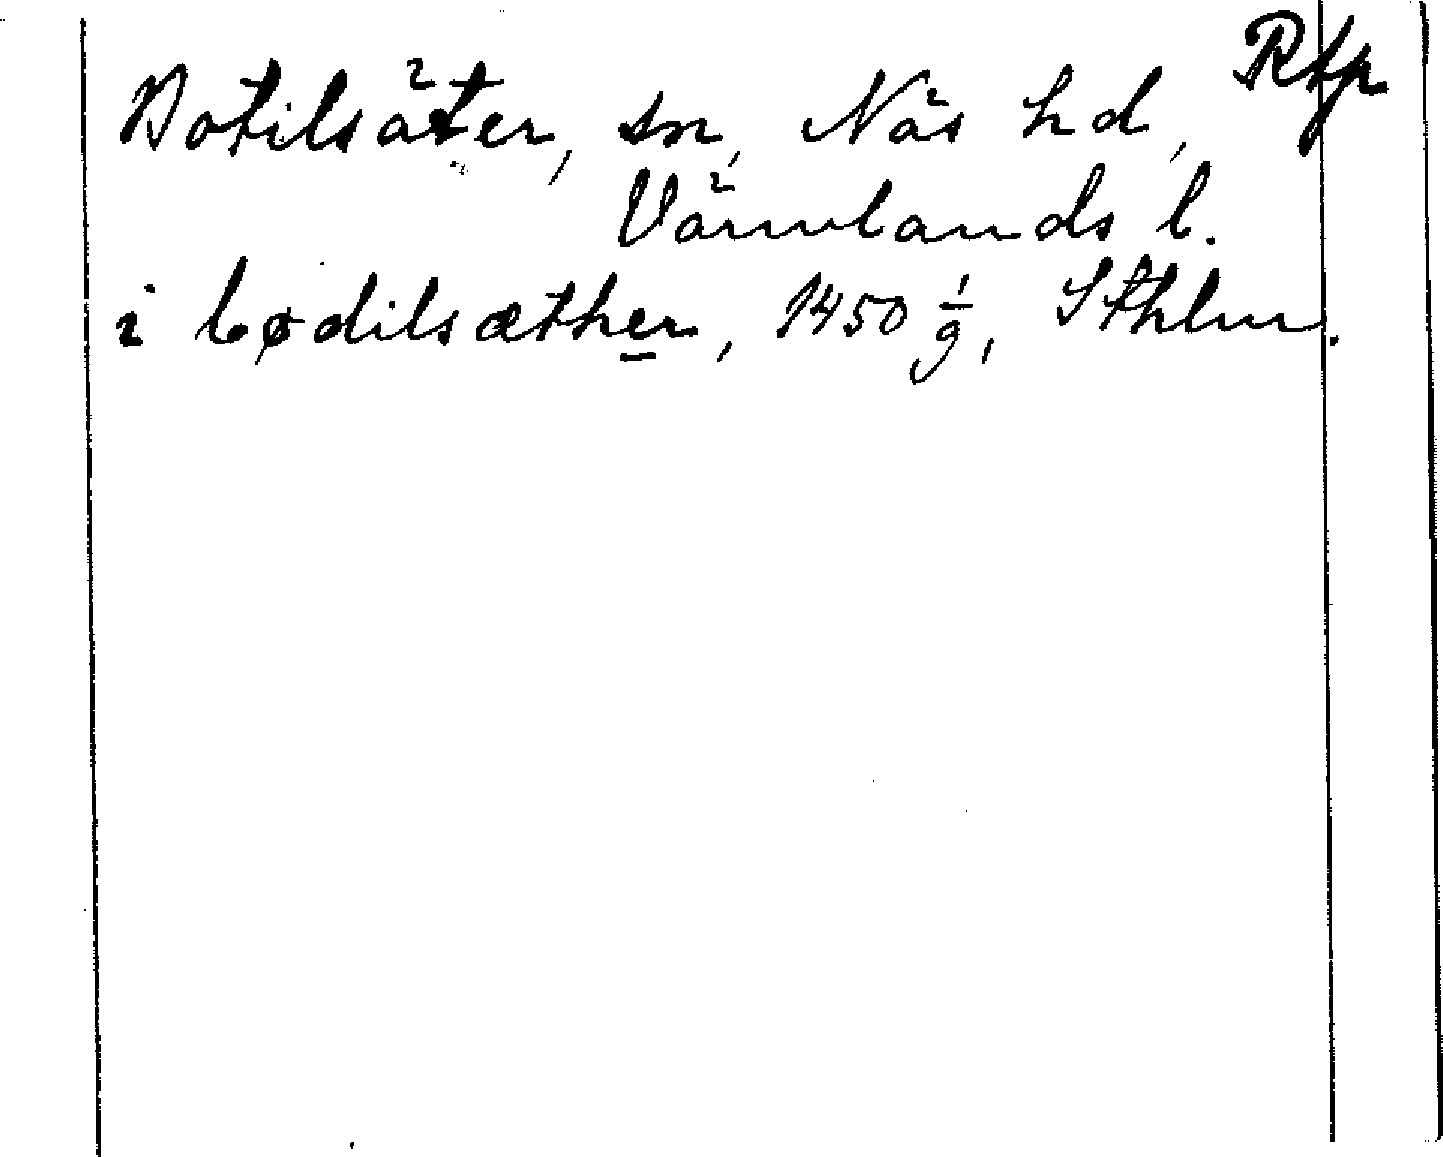 Rfp
Botilsäter, sn, Näs hd,
Värmlands l.
i bødilsæther, 1450 1/9, Sthlm.